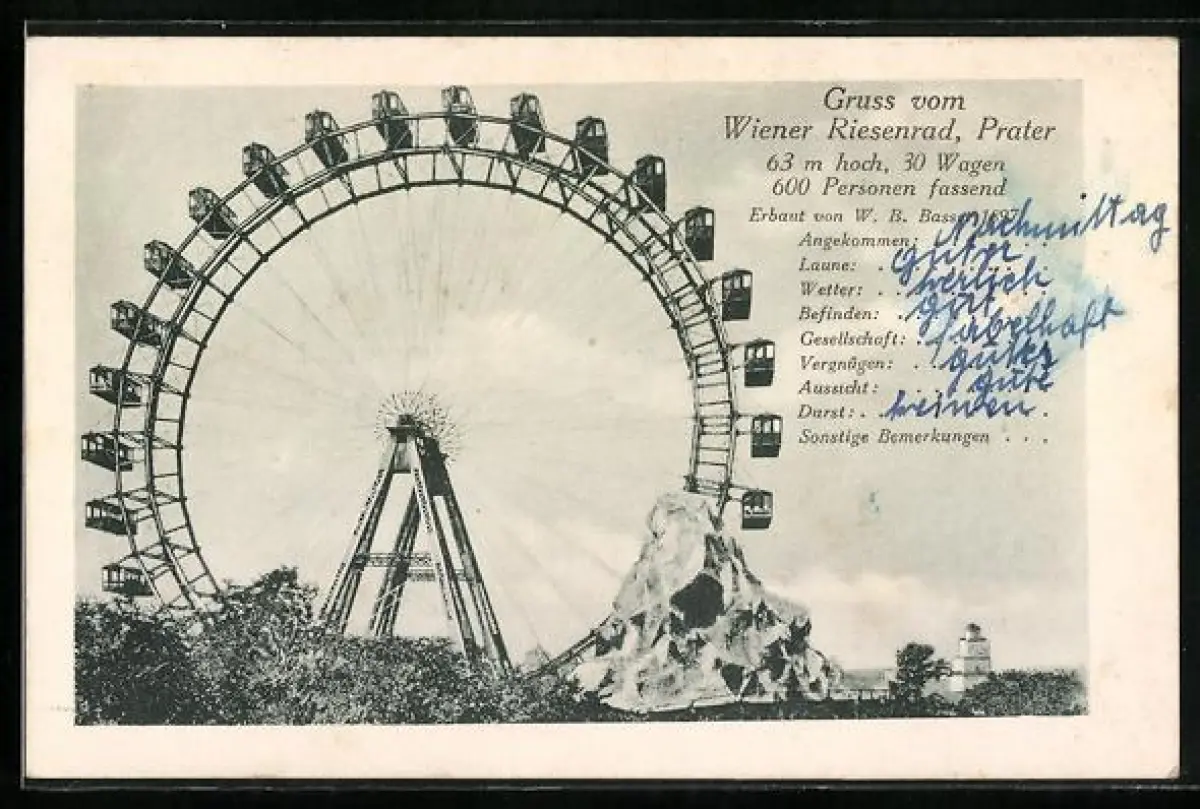 Gruss vom
Wiener Riesenrad, Prater
63 m hoch, 30 Wagen
600 Personen fassend
Erbaut von W. B. Basset 1897
Angekommen: Nachmittag
Laune: . guter
Wetter: . . herlich
Befinden: . gut
Gesellschaft: . fabelhaft
Vergnügen: . . guter
Aussicht: . . gute
Durst: . . keinen .
Sonstige Bemerkungen . . .